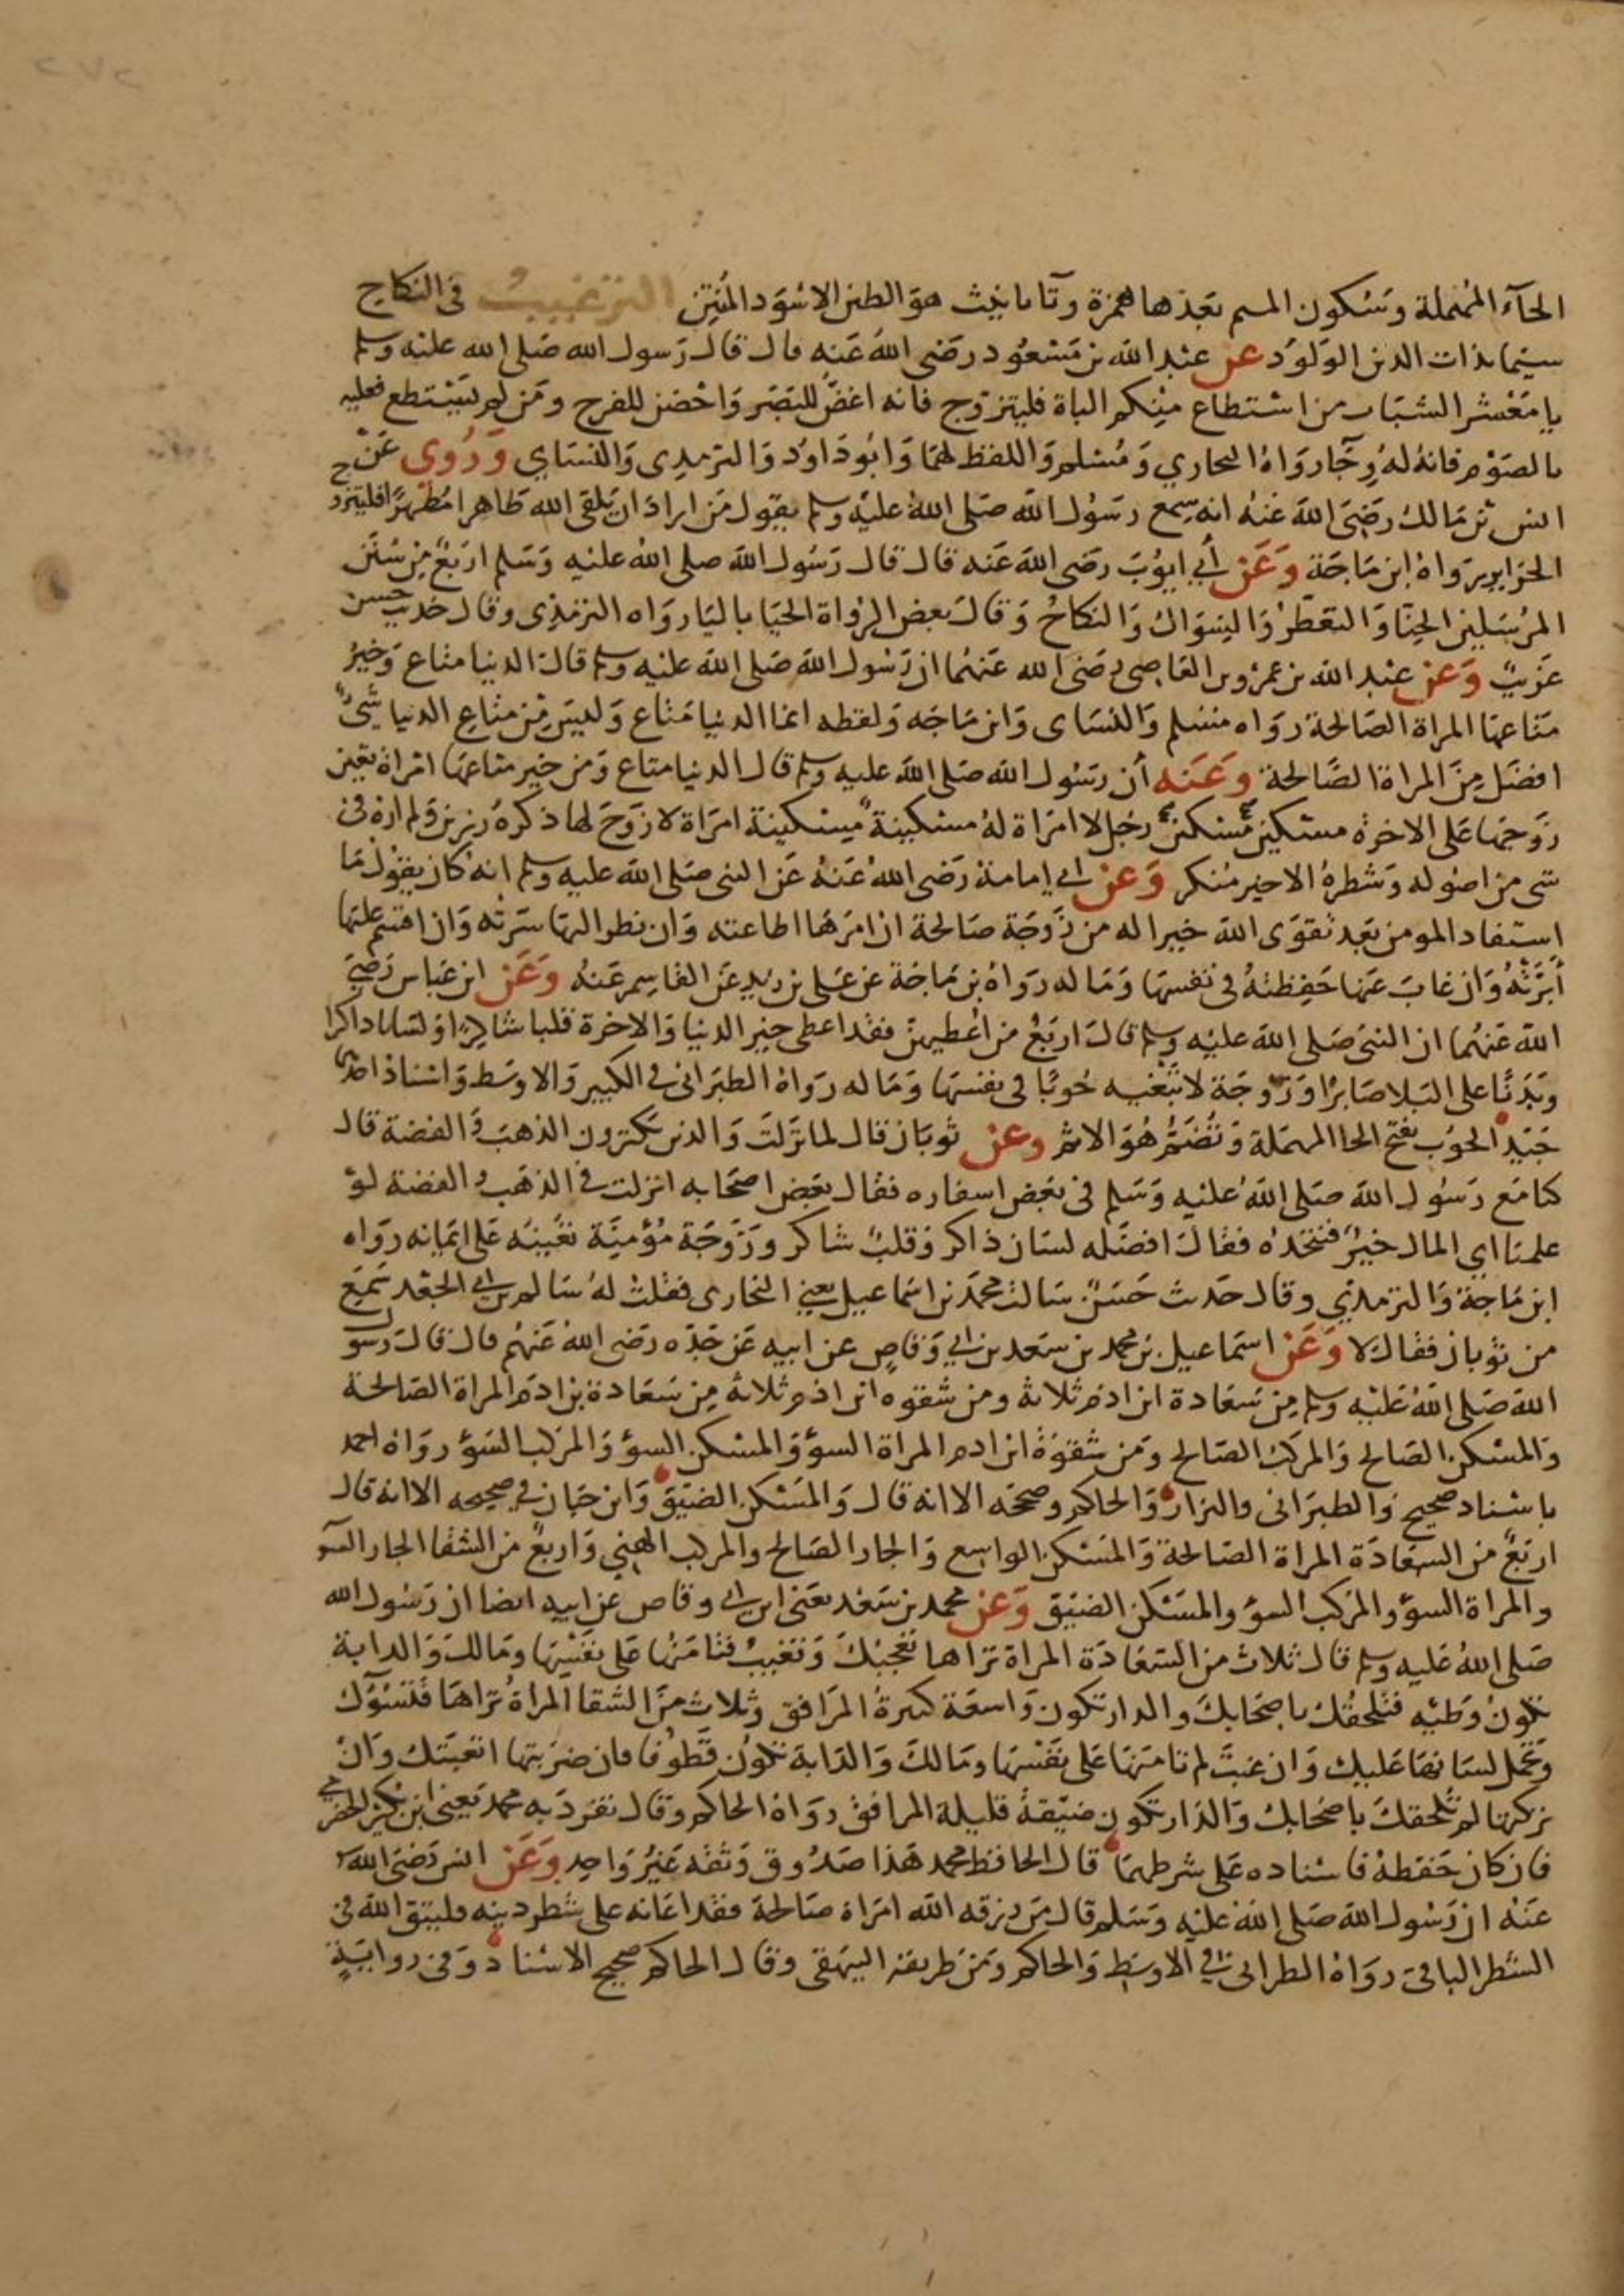 ٢٧٢
الحآء المهملة وسكون الميم بعدها همزة وتا تانيث هو الطين الاسود المنتن الترغيب في النكاح
سيما بذات الدين الولود عن عبد الله بن مسعود رضى الله عنه قال قال رسول الله صلى الله عليه وسلم
يا معشر الشباب من استطاع منكم الباة فليتزوج فانه اغض للبصر واحضن للفرج ومن لم يستطع فعليه
بالصوم فانه له وجآء رواه البخاري ومسلم واللفظ لهما وابو داود والترمذى والنساي وروي عن
انس بن مالك رضى الله عنه انه سمع رسول الله صلى الله عليه وسلم يقول من اراد ان يلقى الله طاهرا مطهرا فليتزوج
الحراير رواه ابن ماجة وعن أبي ايوب رضى الله عنه قال قال رسول الله صلى الله عليه وسلم اربع من سنن
المرسلين الحنا والتعطر والسواك والنكاح وقال بعض الرواة الحيا باليا رواه الترمذى وقال حديث حسن
غريب وعن عبد الله بن عمرو بن العاصى رضى الله عنهما ان رسول الله صلى الله عليه وسلم قال الدنيا متاع وخير
متاعها المراة الصالحة رواه مسلم والنساى وابن ماجه ولفظه انما الدنيا متاع وليس من متاع الدنيا شئ
افضل من المراة الصالحة وعنه أن رسول الله صلى الله عليه وسلم قال الدنيا متاع ومن خير متاعها امراة تعين
زوجها على الاخرة مسكين مسكين رجل لا امراة له مسكينة مسكينة امراة لا زوج لها ذكره رزين ولم اره في
شى من اصوله وشطره الاخير منكر وعن ابي امامة رضى الله عنه عن النبى صلى الله عليه وسلم انه كان يقول ما
استفاد المومن بعد تقوى الله خيرا له من زوجة صالحة ان امرها اطاعته وان نظر اليها سرته وان اقسم عليها
أبرته وان غاب عنها حفظته في نفسها وماله رواه بن ماجة عن على بن زيد عن القاسم عنه وعن ابن عباس رضى
الله عنهما ان النبى صلى الله عليه وسلم قال اربع من اعطيهن فقد اعطى خير الدنيا والاخرة قلبا شاكرا ولسانا ذاكرا
وبدنا على البلا صابرا وزوجة لا تبغيه حوبا في نفسها وماله رواه الطبرانى في الكبير والاوسط واسناد احدهما
جيد الحوب بفتح الحا المهملة وتضم هو الاثم وعن ثوبان قال لما نزلت والذين يكنزون الذهب والفضة قال
كنا مع رسول الله صلى الله عليه وسلم في بعض اسفاره فقال بعض اصحابه انزلت في الذهب والفضة لو
علمنا اي المال خير فنتخذه فقال افضله لسان ذاكر وقلب شاكر وزوجة مؤمنة تعينه على ايمانه رواه
ابن ماجة والترمذي وقال حديث حسن سالت محمد بن اسماعيل يعني البخارى فقلت له سالم بن ابي الجعد سمع
من ثوبان فقال لا وعن اسماعيل بن محمد بن سعد بن ابي وقاص عن ابيه عن جده رضى الله عنهم قال قال رسول
الله صلى الله عليه وسلم من سعادة ابن ادم ثلاثة ومن شقوه ابن ادم ثلاثة من سعادة بن ادم المراة الصالحة
والمسكن الصالح والمركب الصالح ومن شقوة ابن ادم المراة السؤ والمسكن السؤ والمركب السؤ رواه احمد
باسناد صحيح والطبرانى والبزار والحاكم وصححه الا انه قال والمسكن الضيق وابن حبان في صحيحه الا انه قال
اربع من السعادة المراة الصالحة والمسكن الواسع والجار الصالح والمركب الهني واربع من الشقا الجار السو
والمراة السؤ والمركب السؤ والمسكن الضيق وعن محمد بن سعد يعنى ابن ابي وقاص عن ابيه ايضا ان رسول الله
صلى الله عليه وسلم قال ثلاث من السعادة المراة تراها تعجبك وتغيب فتامنها على نفسها ومالك والدابة
تكون وطيه فتلحقك باصحابك والدار تكون واسعة كثيرة المرافق وثلاث من الشقا المراة تراها فتسؤك
وتحمل لسانها عليك وان غبت لم تامنها على نفسها ومالك والدابة تكون قطوفا فان ضربتها اتعبتك وان
تركتها لم تلحقك باصحابك والدار تكون ضيقة قليلة المرافق رواه الحاكم وقال تفرد به محمد يعني ابن بكير الحضرمي
فان كان حفظه فاسناده على شرطهما قال الحافظ محمد هذا صدوق وثقه غير واحد وعن انس رضى الله
عنه ان رسول الله صلى الله عليه وسلم قال من رزقه الله امراة صالحة فقد اعانه على شطر دينه فليتق الله في
الشطر الباقى رواه الطبرانى في الاوسط والحاكم ومن طريقه البيهقى وقال الحاكم صحيح الاسناد وفى رواية